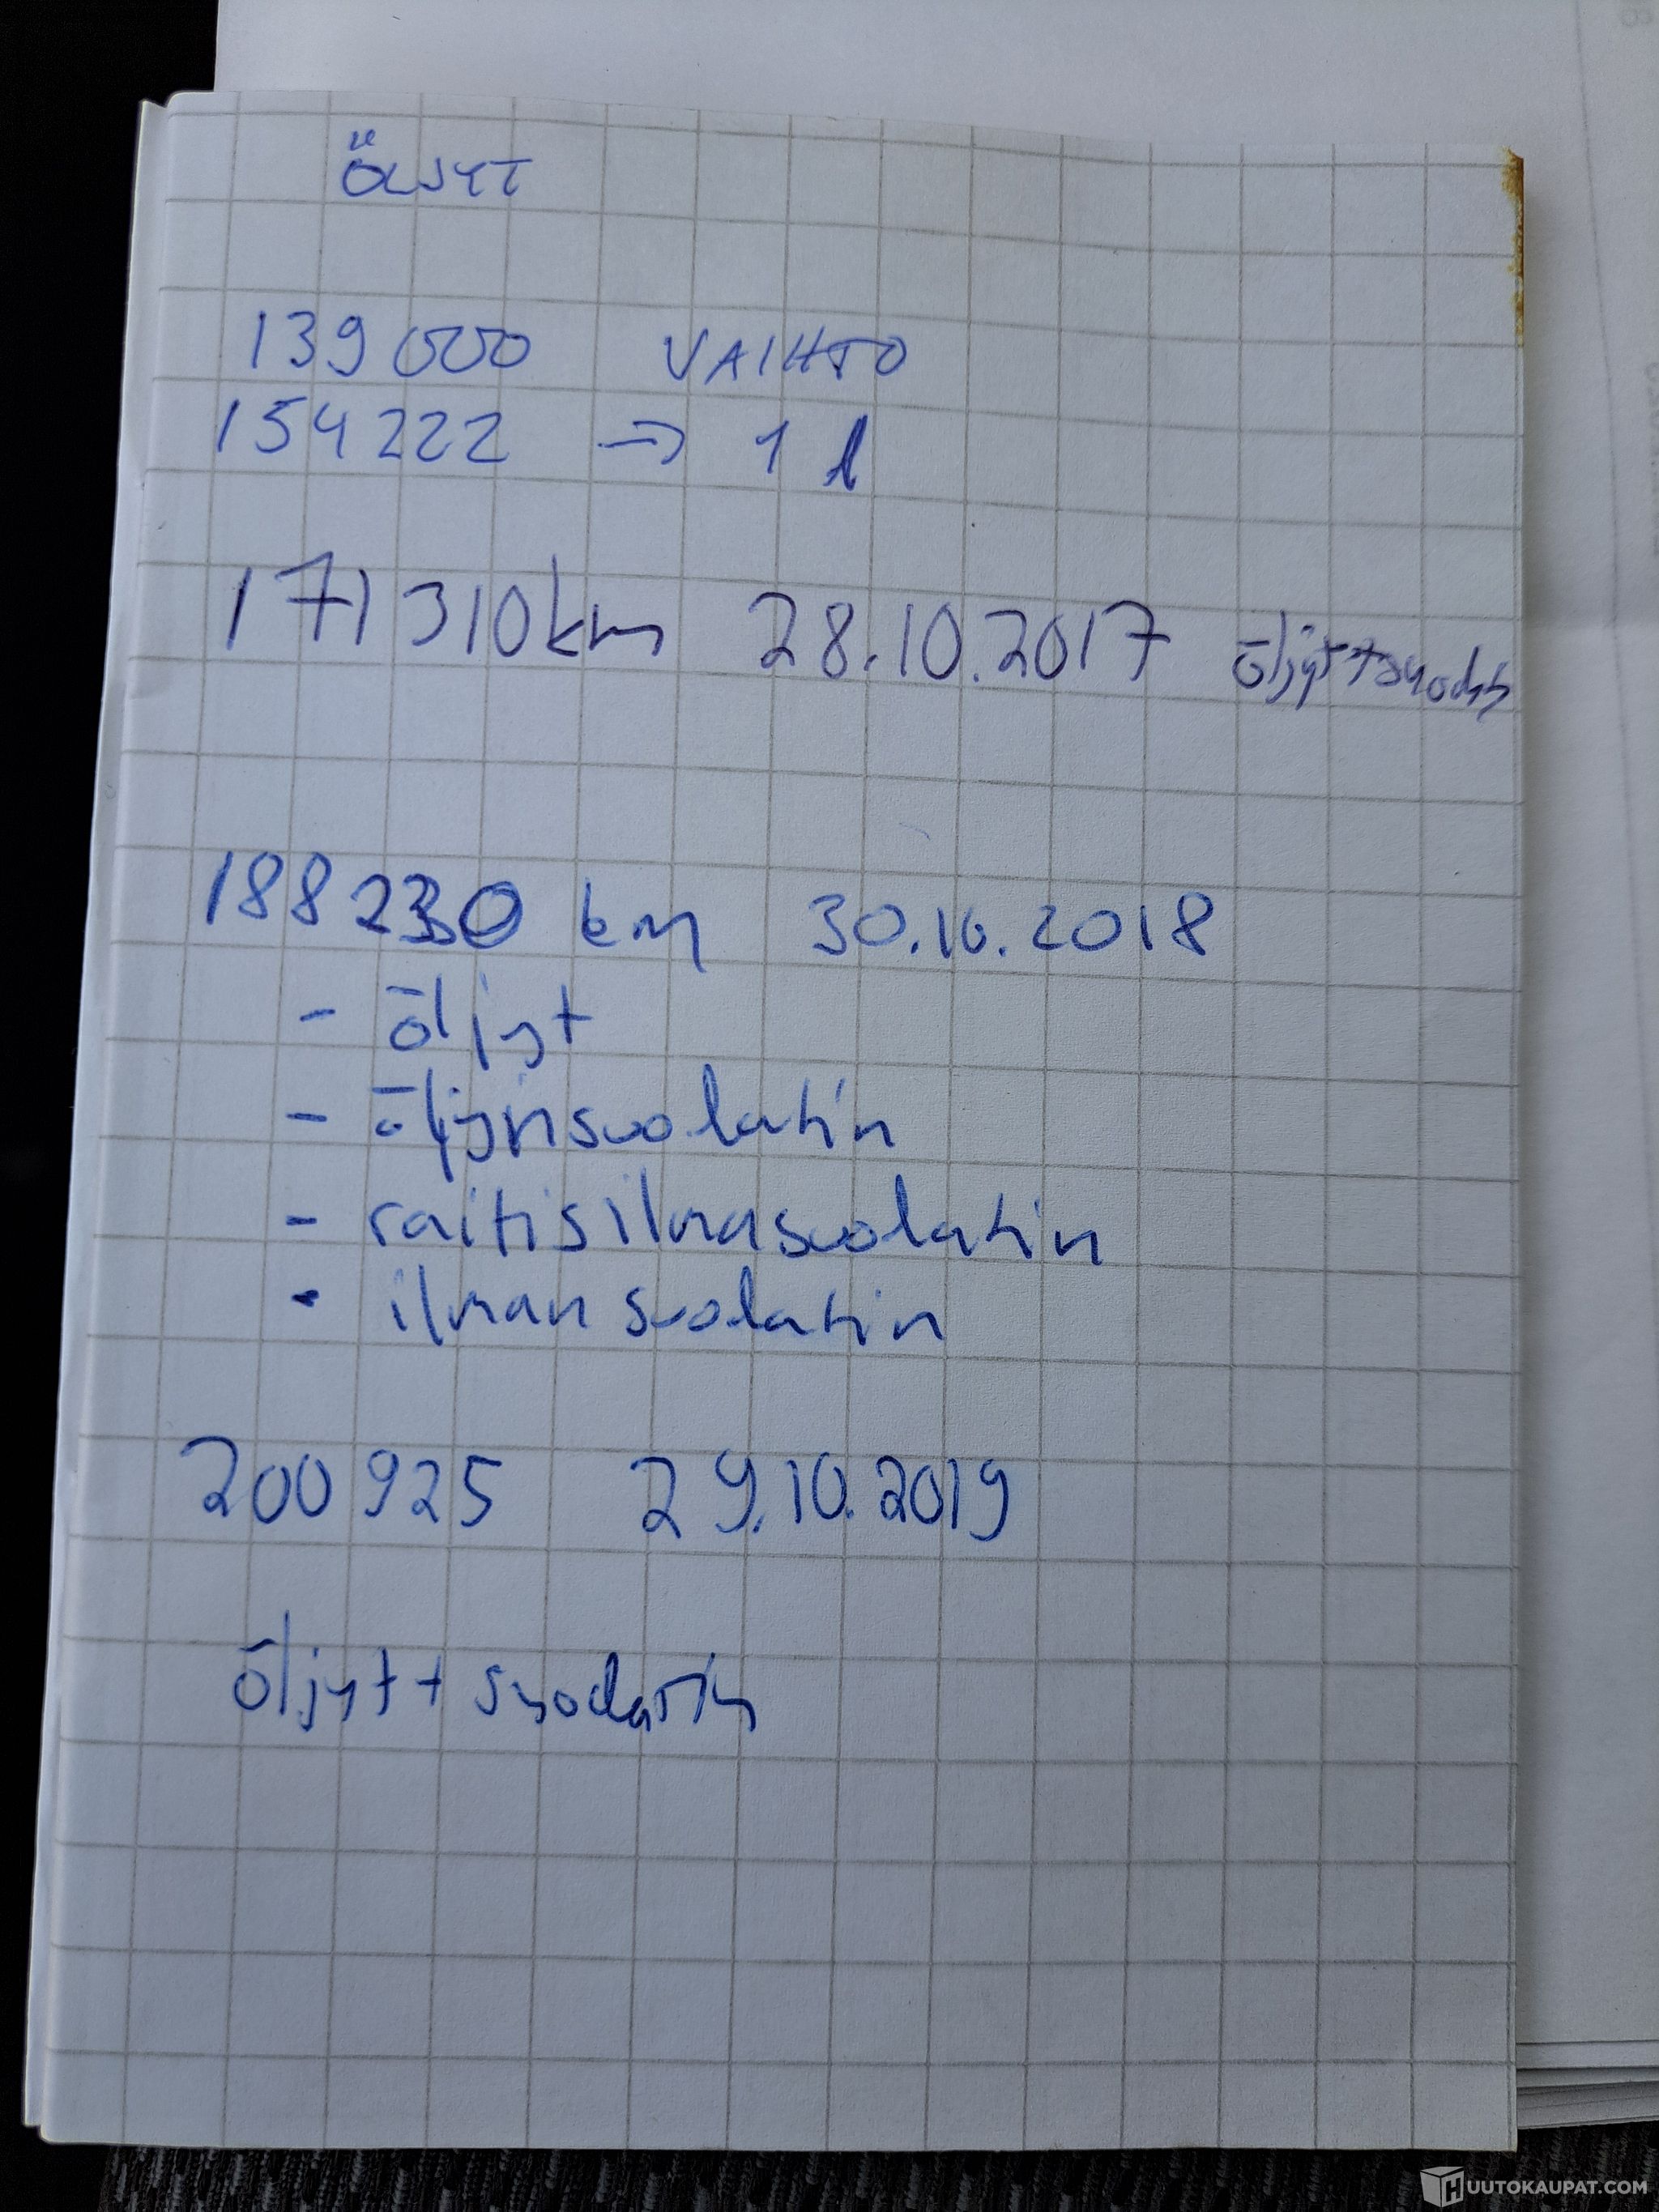 ÖLJYT
139 000 VAIHTO
154 222 → 1 l
171 310 km 28.10.2017 öljyt + suod
188 230 km 30.10.2018
- öljyt
- öljynsuodatin
- raitisilmasuodatin
- ilmansuodatin
200 925 29.10.2019
öljyt + suodatin
HUUTOKAUPAT.COM